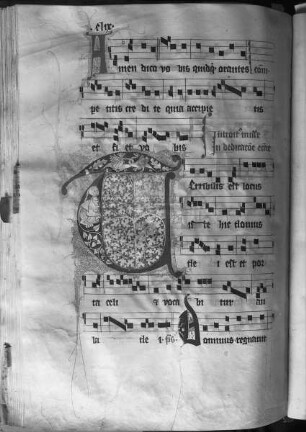 men dico vo bis quidqͥ orantes
pe titis cre di te quia accipie tis
et fi et vo bis
In dedicatōe eccͤe
Erribilis est locus
is te hic domus
de i est et por
ta celi et voca bi tur au
la de i. p̄s. Dominus regnauit